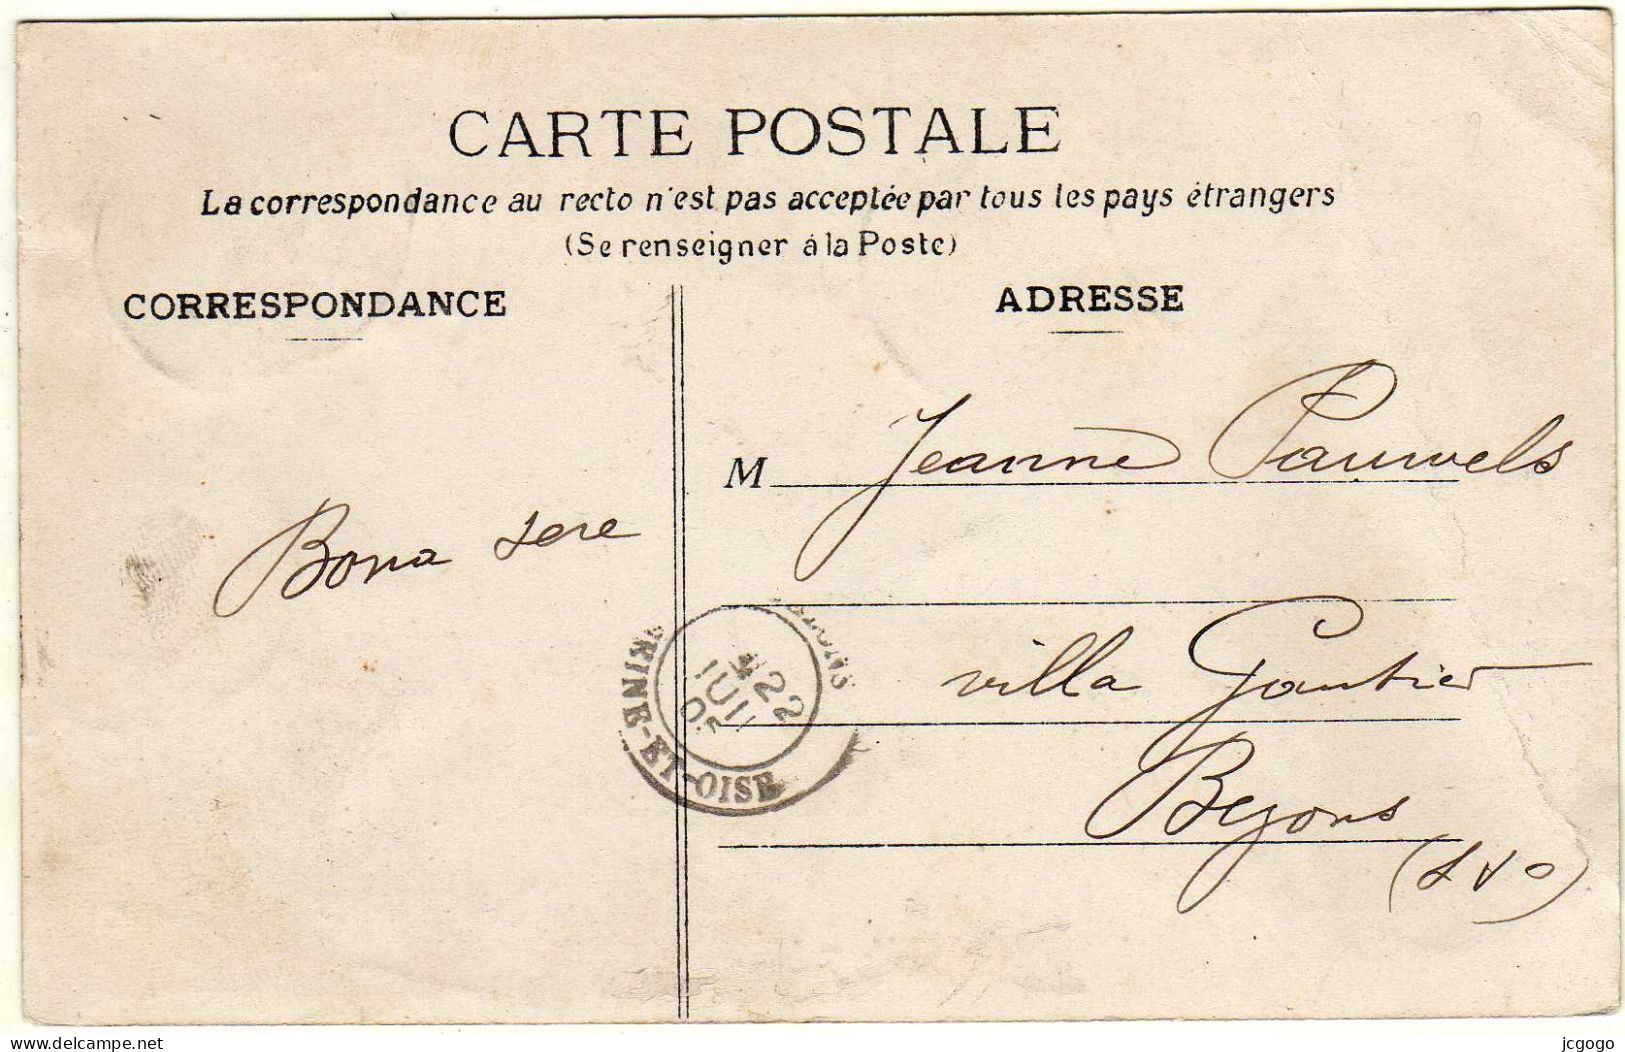 CARTE POSTALE
La correspondance au recto n'est pas acceptée par tous les pays étrangers
(Se renseigner à la Poste)
CORRESPONDANCE
ADRESSE
M Jeanne Pauwels
Bona sere
villa Gautier
Bezons
(S & O)
22
JUIL
SEINE-ET-OISE
delcampe.net
jcgogo